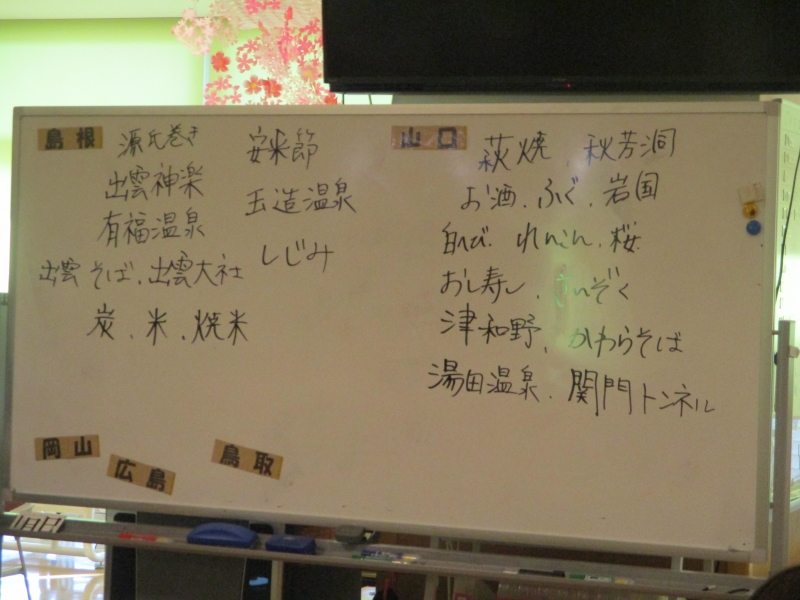 島根
源氏巻き
出雲神楽
有福温泉
出雲そば、出雲大社
炭、米、焼米
安来節
玉造温泉
しじみ
山口
萩焼、秋芳洞
お酒、ふぐ、岩国
白へび、れんこん、桜
おし寿し、
津和野、かわらそば
湯田温泉、関門トンネル
岡山
広島
鳥取